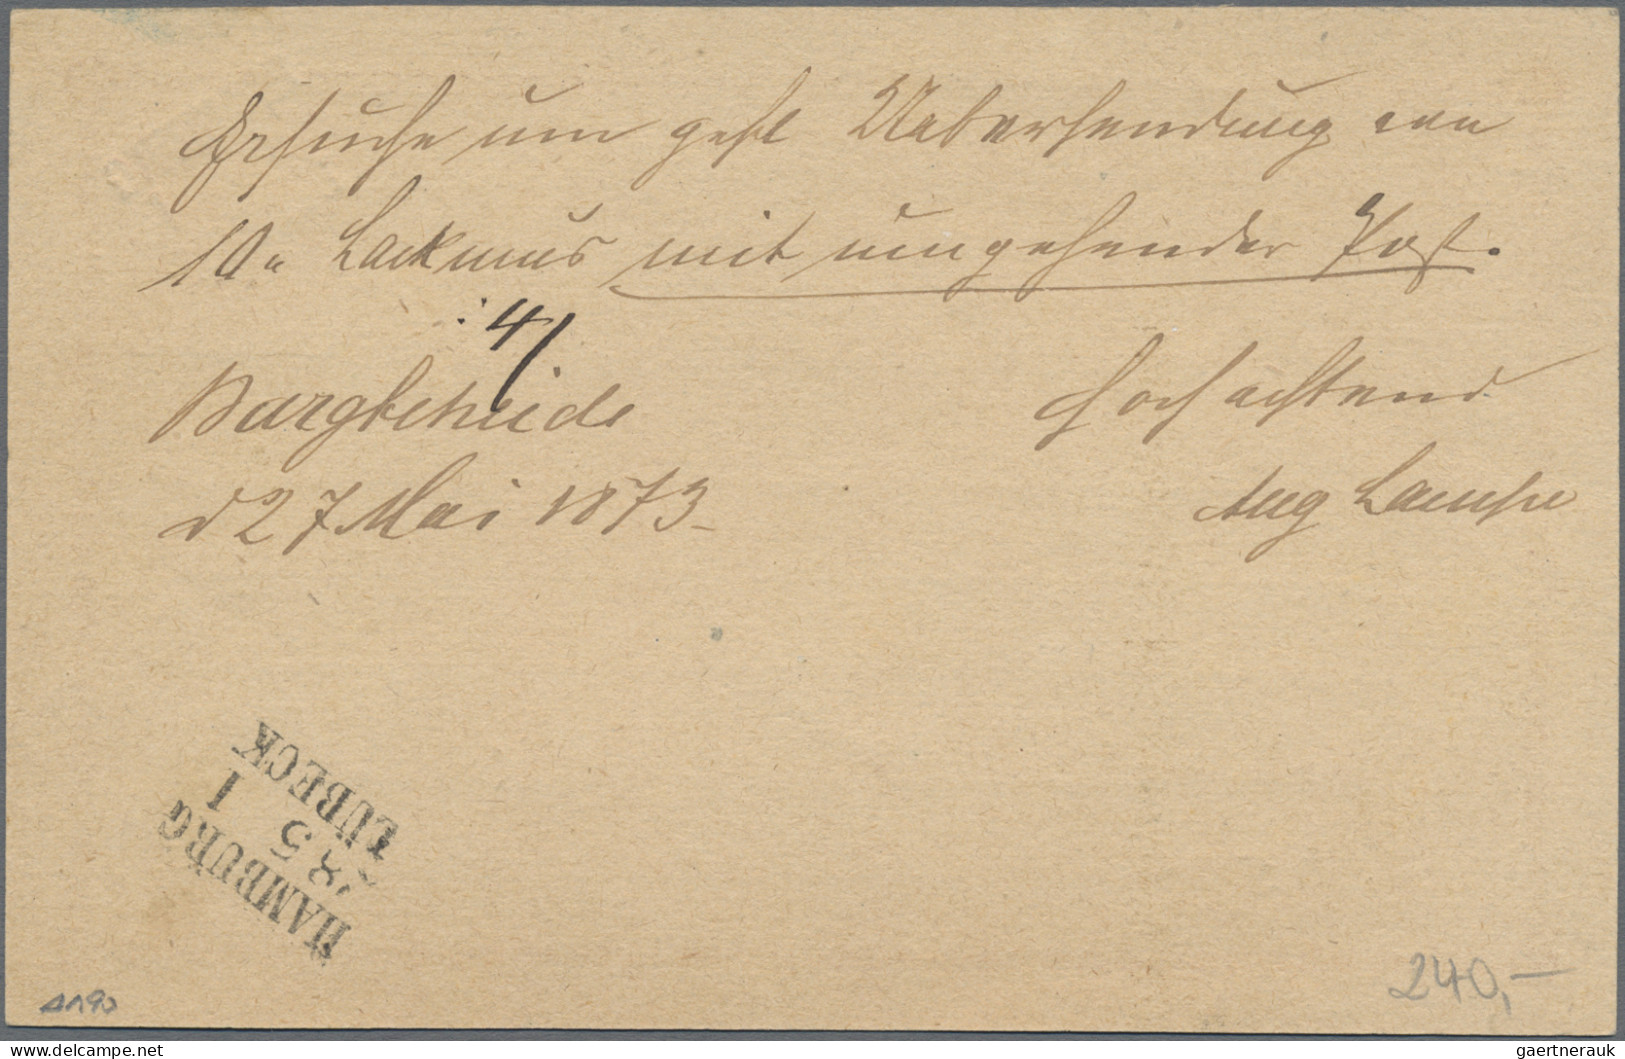 Ersuche um gefl Uebersendung von
10 " Lackmus mit umgehender Post.
: 4/
Bargteheide
d 27 Mai 1873
Hochachtend
Aug Lampe
HAMBURG
28 5 I
LÜBECK
240,-
delcampe.net
gaertnerauk